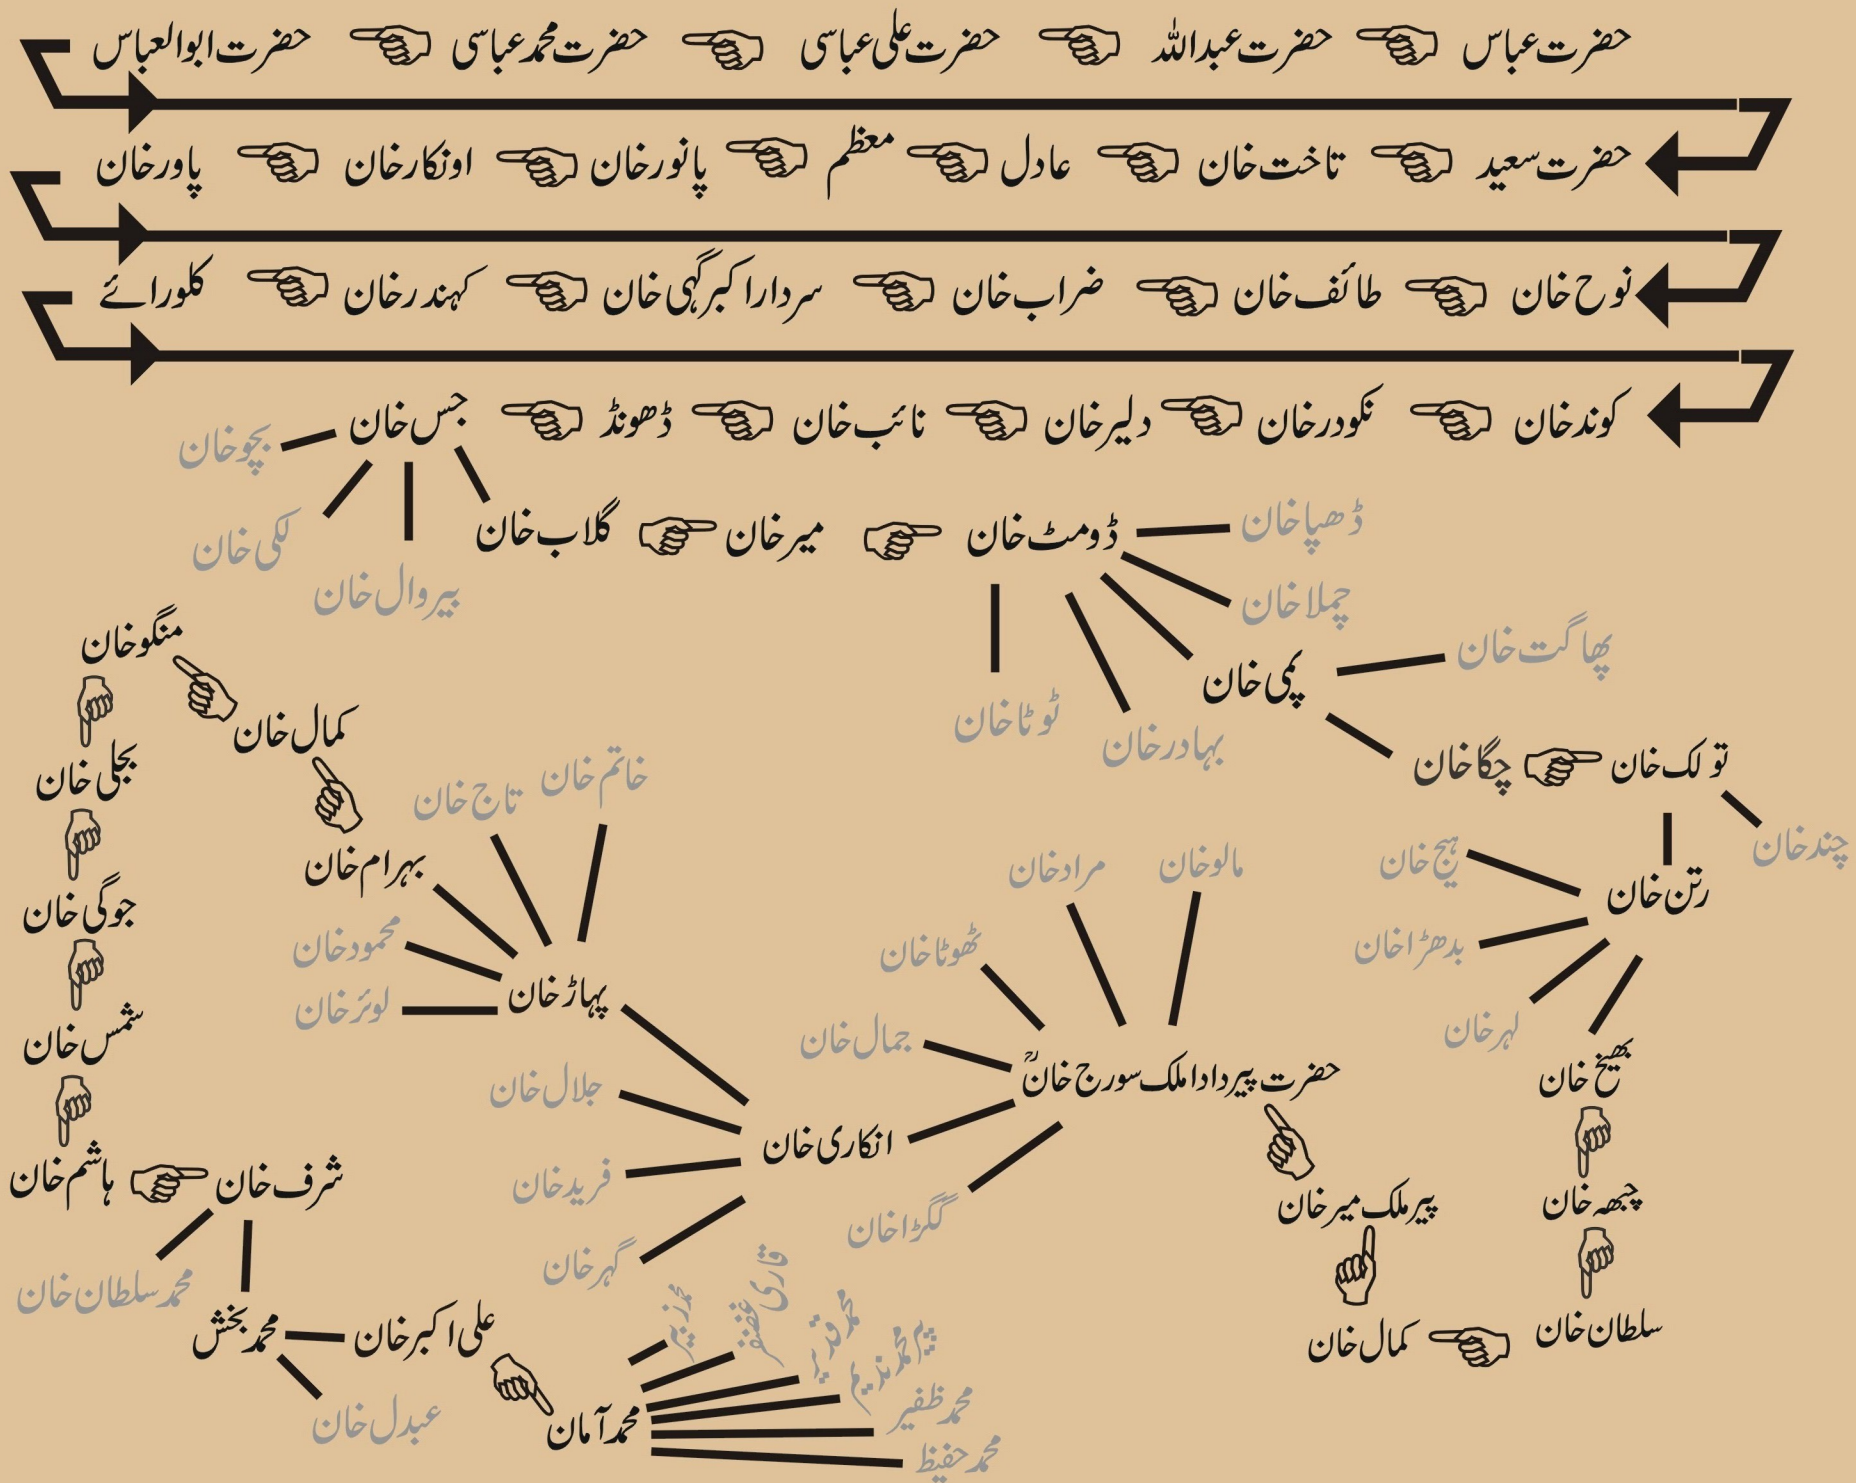 حضرت عباس حضرت عبداللہ حضرت علی عباسی حضرت محمد عباسی حضرت ابوالعباس
حضرت سعید تاخت خان عادل معظم پانور خان اونکار خان پاور خان
نوح خان طائف خان ضراب خان سردار اکبر گہی خان کہندر خان کلورائے
کوند خان نکودر خان دلیر خان نائب خان ڈھونڈ جس خان
بچو خان
لکی خان
بیروال خان
گلاب خان میر خان ڈومٹ خان
ڈھپا خان
چملا خان
پمی خان
بہادر خان
ٹوٹا خان
پھاگت خان
چگا خان تولک خان
چند خان
رتن خان
ہیج خان
بدھڑا خان
لہر خان
بھیخ خان
چبھہ خان
سلطان خان
کمال خان
پیر ملک میر خان
حضرت پیر دادا ملک سورج خانؒ
مالو خان
مراد خان
ٹھوٹا خان
جمال خان
گکڑا خان
انکاری خان
جلال خان
فرید خان
گہر خان
پہاڑ خان
خاتم خان
تاج خان
بہرام خان
محمود خان
لوئر خان
کمال خان
منگو خان
بجلی خان
جوگی خان
شمس خان
ہاشم خان
شرف خان
محمد سلطان خان
محمد بخش
علی اکبر خان
عبدل خان
محمد آمان
محمد زبیر
قاری غضنفر
محمد قدیر
پیر محمد ندیم
محمد ظفیر
محمد حفیظ